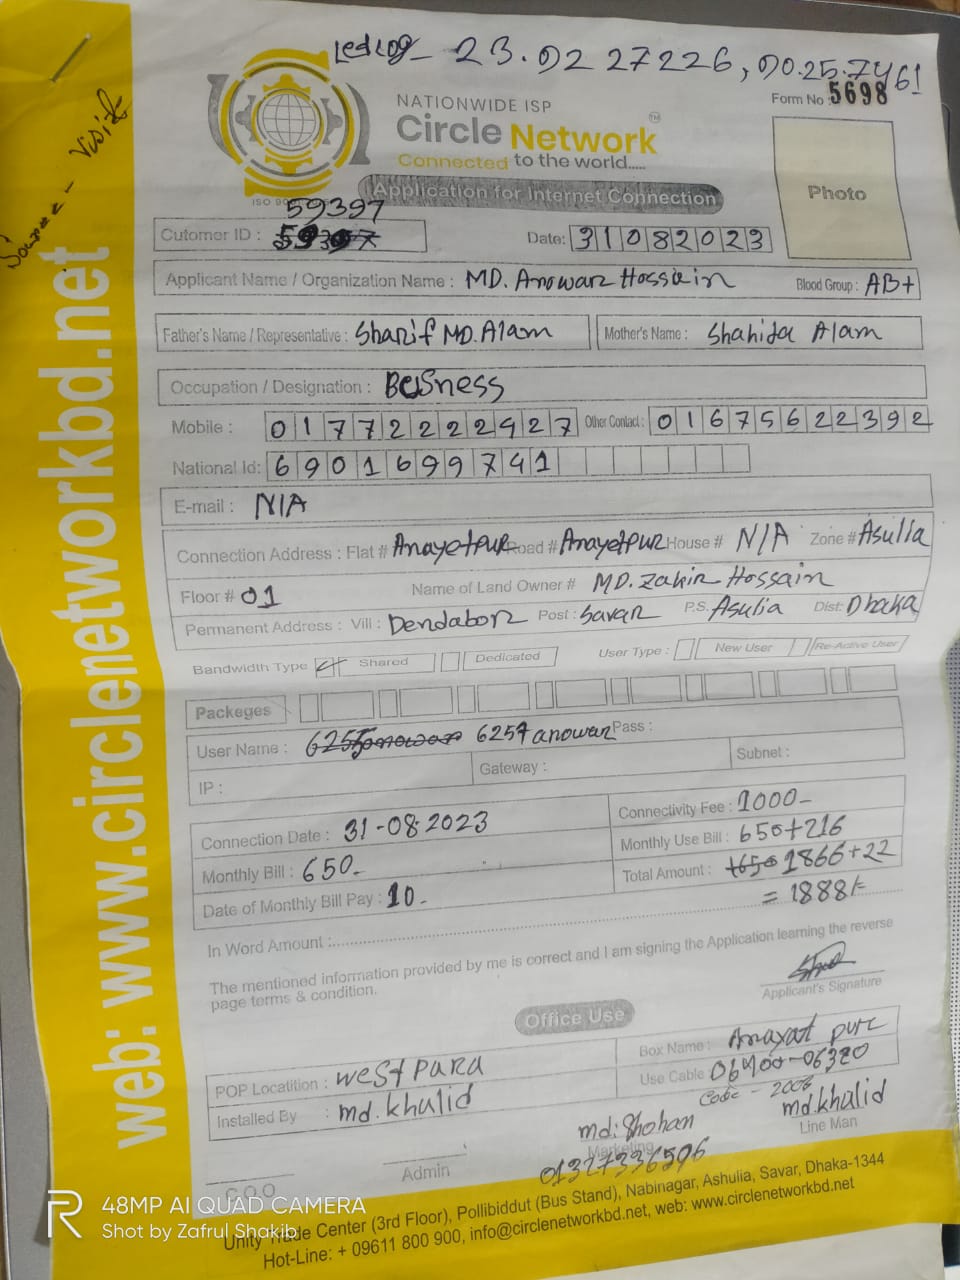 Ledlog- 23.0227226, 90.257461
NATIONWIDE ISP
Form No : 5698
Circle Network TM
Connected to the world.....
Source - Visit
ISO 90
Application for Internet Connection
Photo
59397
Cutomer ID : 59397
Date: 31082023
Applicant Name / Organization Name : MD. Anowar Hossain
Blood Group : AB+
Father's Name / Representative : Sharif MD. Alam
Mother's Name : Shahida Alam
Occupation / Designation : Busness
Mobile : 01772222927 Other Contact : 01675622392
National Id: 6901699741
E-mail : N/A
Connection Address : Flat # Anayetpur Road # Anayetpur House # N/A Zone # Asulia
Floor # 01 Name of Land Owner # MD. Zakir Hossain
Permanent Address : Vill : Dendabor Post : Savar P.S. Asulia Dist: Dhaka
Bandwidth Type Shared Dedicated User Type : New User Re-Active User
Packeges
User Name : 6257anowar Pass :
IP : Gateway : Subnet :
Connection Date : 31-08-2023 Connectivity Fee : 1000-
Monthly Bill : 650- Monthly Use Bill : 650+216
Date of Monthly Bill Pay : 10- Total Amount : 1650 1866+22
= 1888/-
In Word Amount :
The mentioned information provided by me is correct and I am signing the Application learning the reverse
page terms & condition.
Applicant's Signature
Office Use
POP Locatition : West Para Box Name : Anayat pur
Installed By : md. khalid Use Cable 06700-06320
Code - 2006
md: Shohan md.khalid
Marketing Line Man
01327336596
C.O.O Admin
Unity Trade Center (3rd Floor), Pollibiddut (Bus Stand), Nabinagar, Ashulia, Savar, Dhaka-1344
Hot-Line: + 09611 800 900, info@circlenetworkbd.net, web: www.circlenetworkbd.net
web: www.circlenetworkbd.net
48MP AI QUAD CAMERA
Shot by Zafrul Shakib